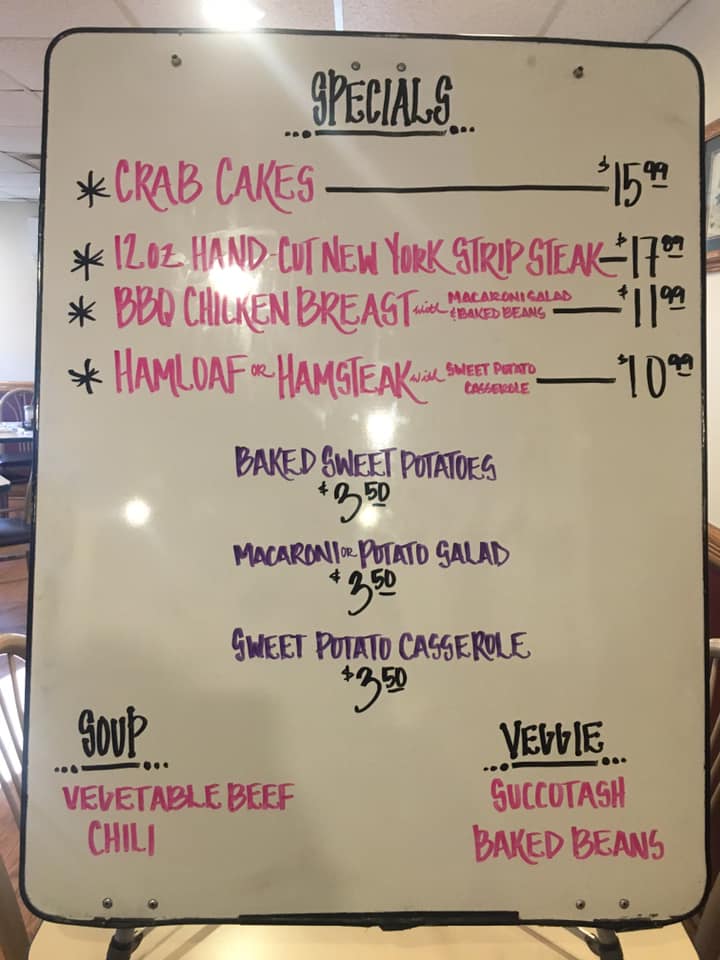 SPECIALS
* CRAB CAKES $15.99
* 12oz HAND-CUT NEW YORK STRIP STEAK $17.89
* BBQ CHICKEN BREAST with MACARONI SALAD & BAKED BEANS $11.99
* HAMLOAF OR HAMSTEAK with SWEET POTATO CASSEROLE $10.99
BAKED SWEET POTATOES
$3.50
MACARONI OR POTATO SALAD
$3.50
SWEET POTATO CASSEROLE
$3.50
SOUP
VEGETABLE BEEF
CHILI
VEGGIE
SUCCOTASH
BAKED BEANS